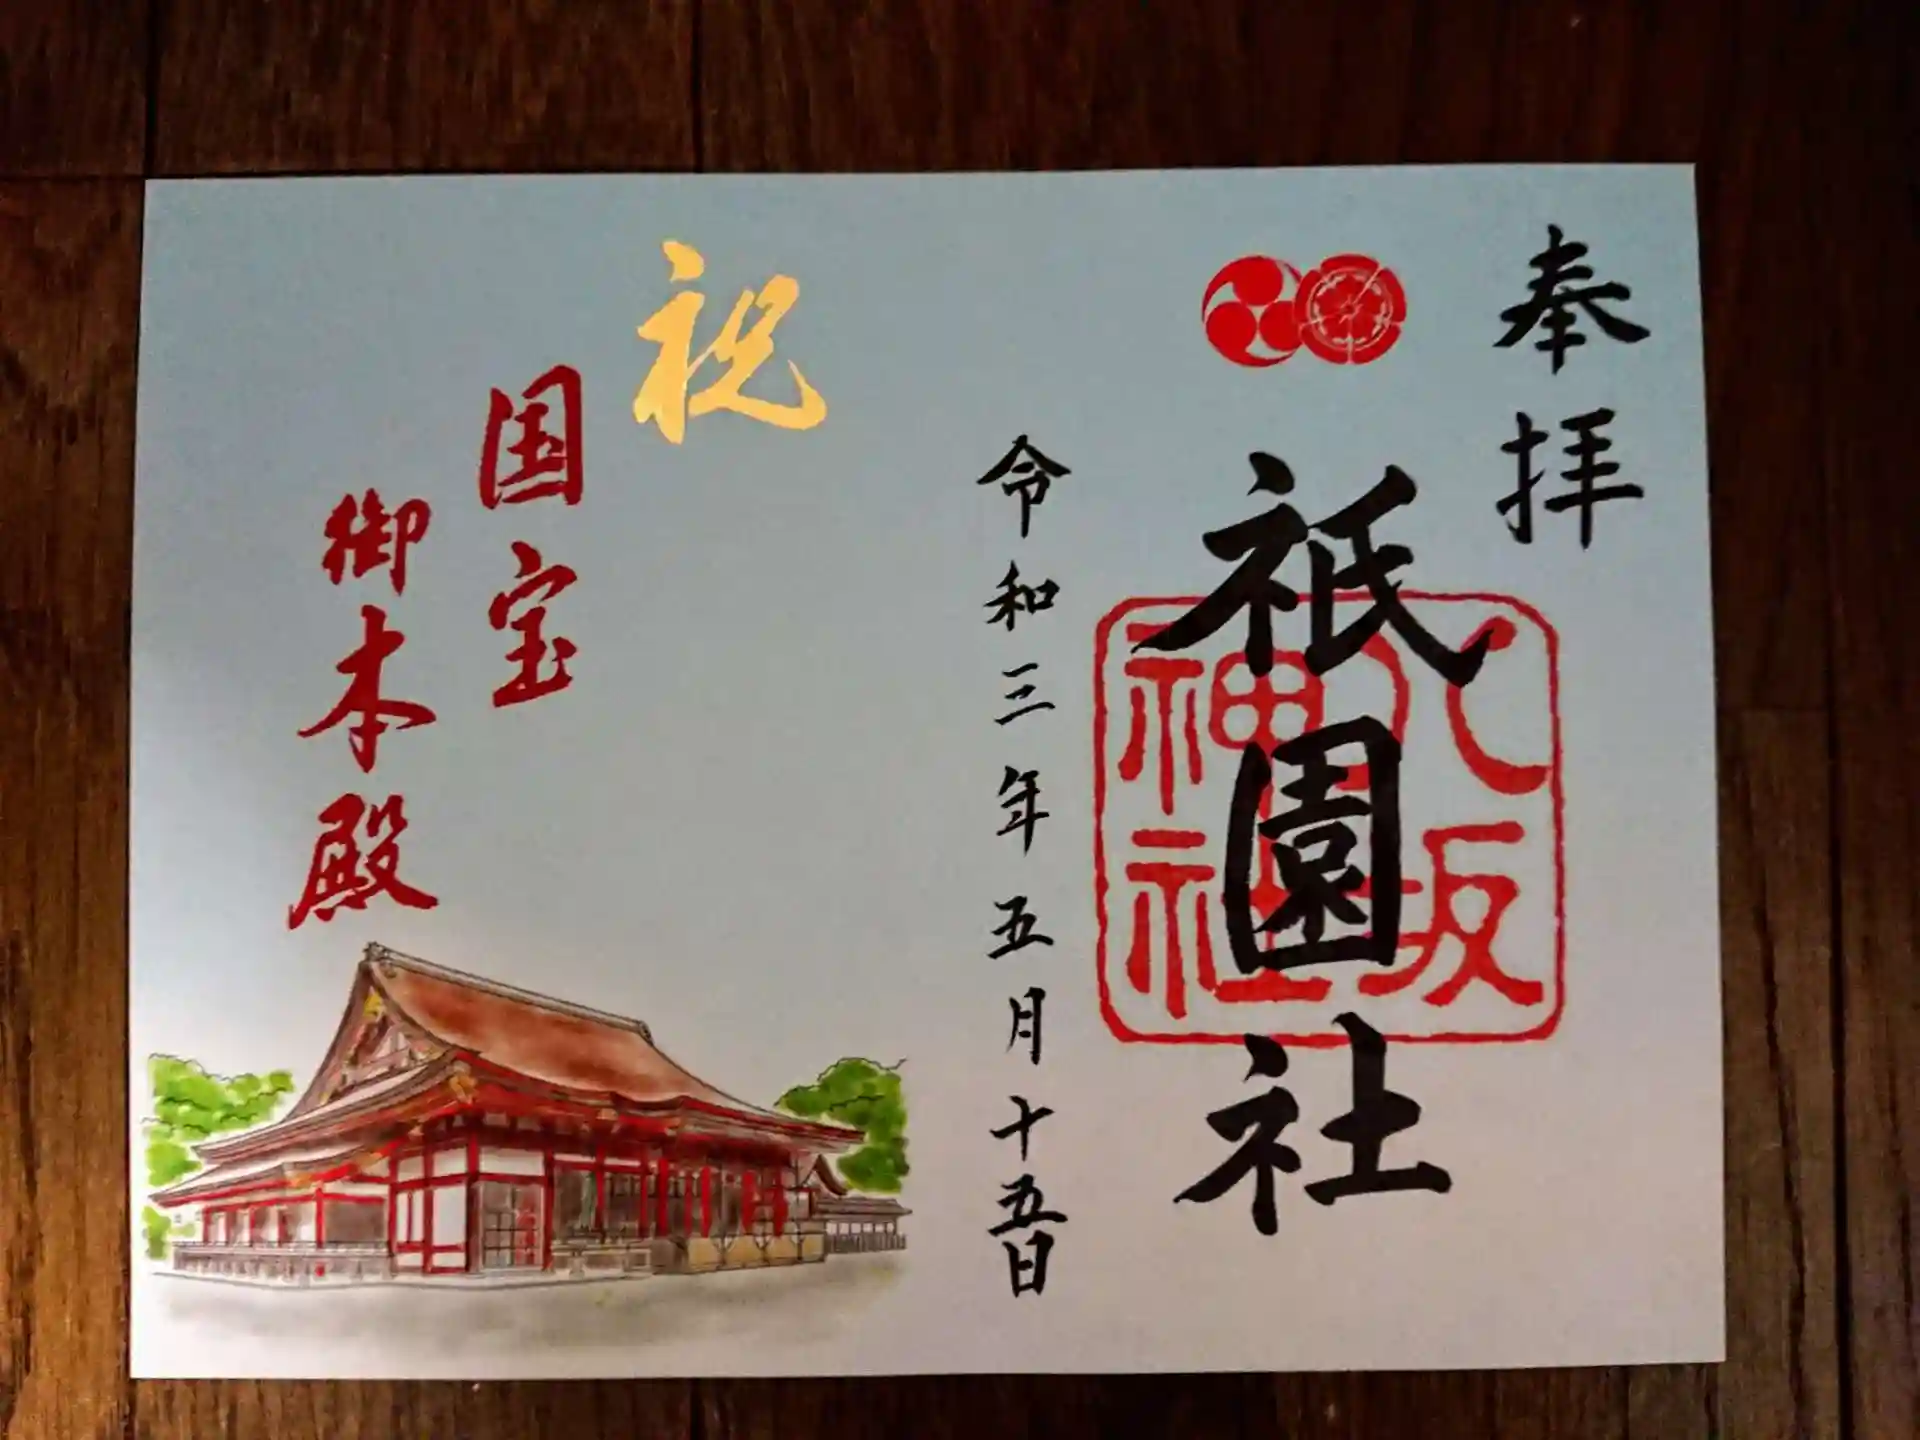 奉拝
祇園社
八坂
神社
令和三年五月十五日
祝
国宝
御本殿